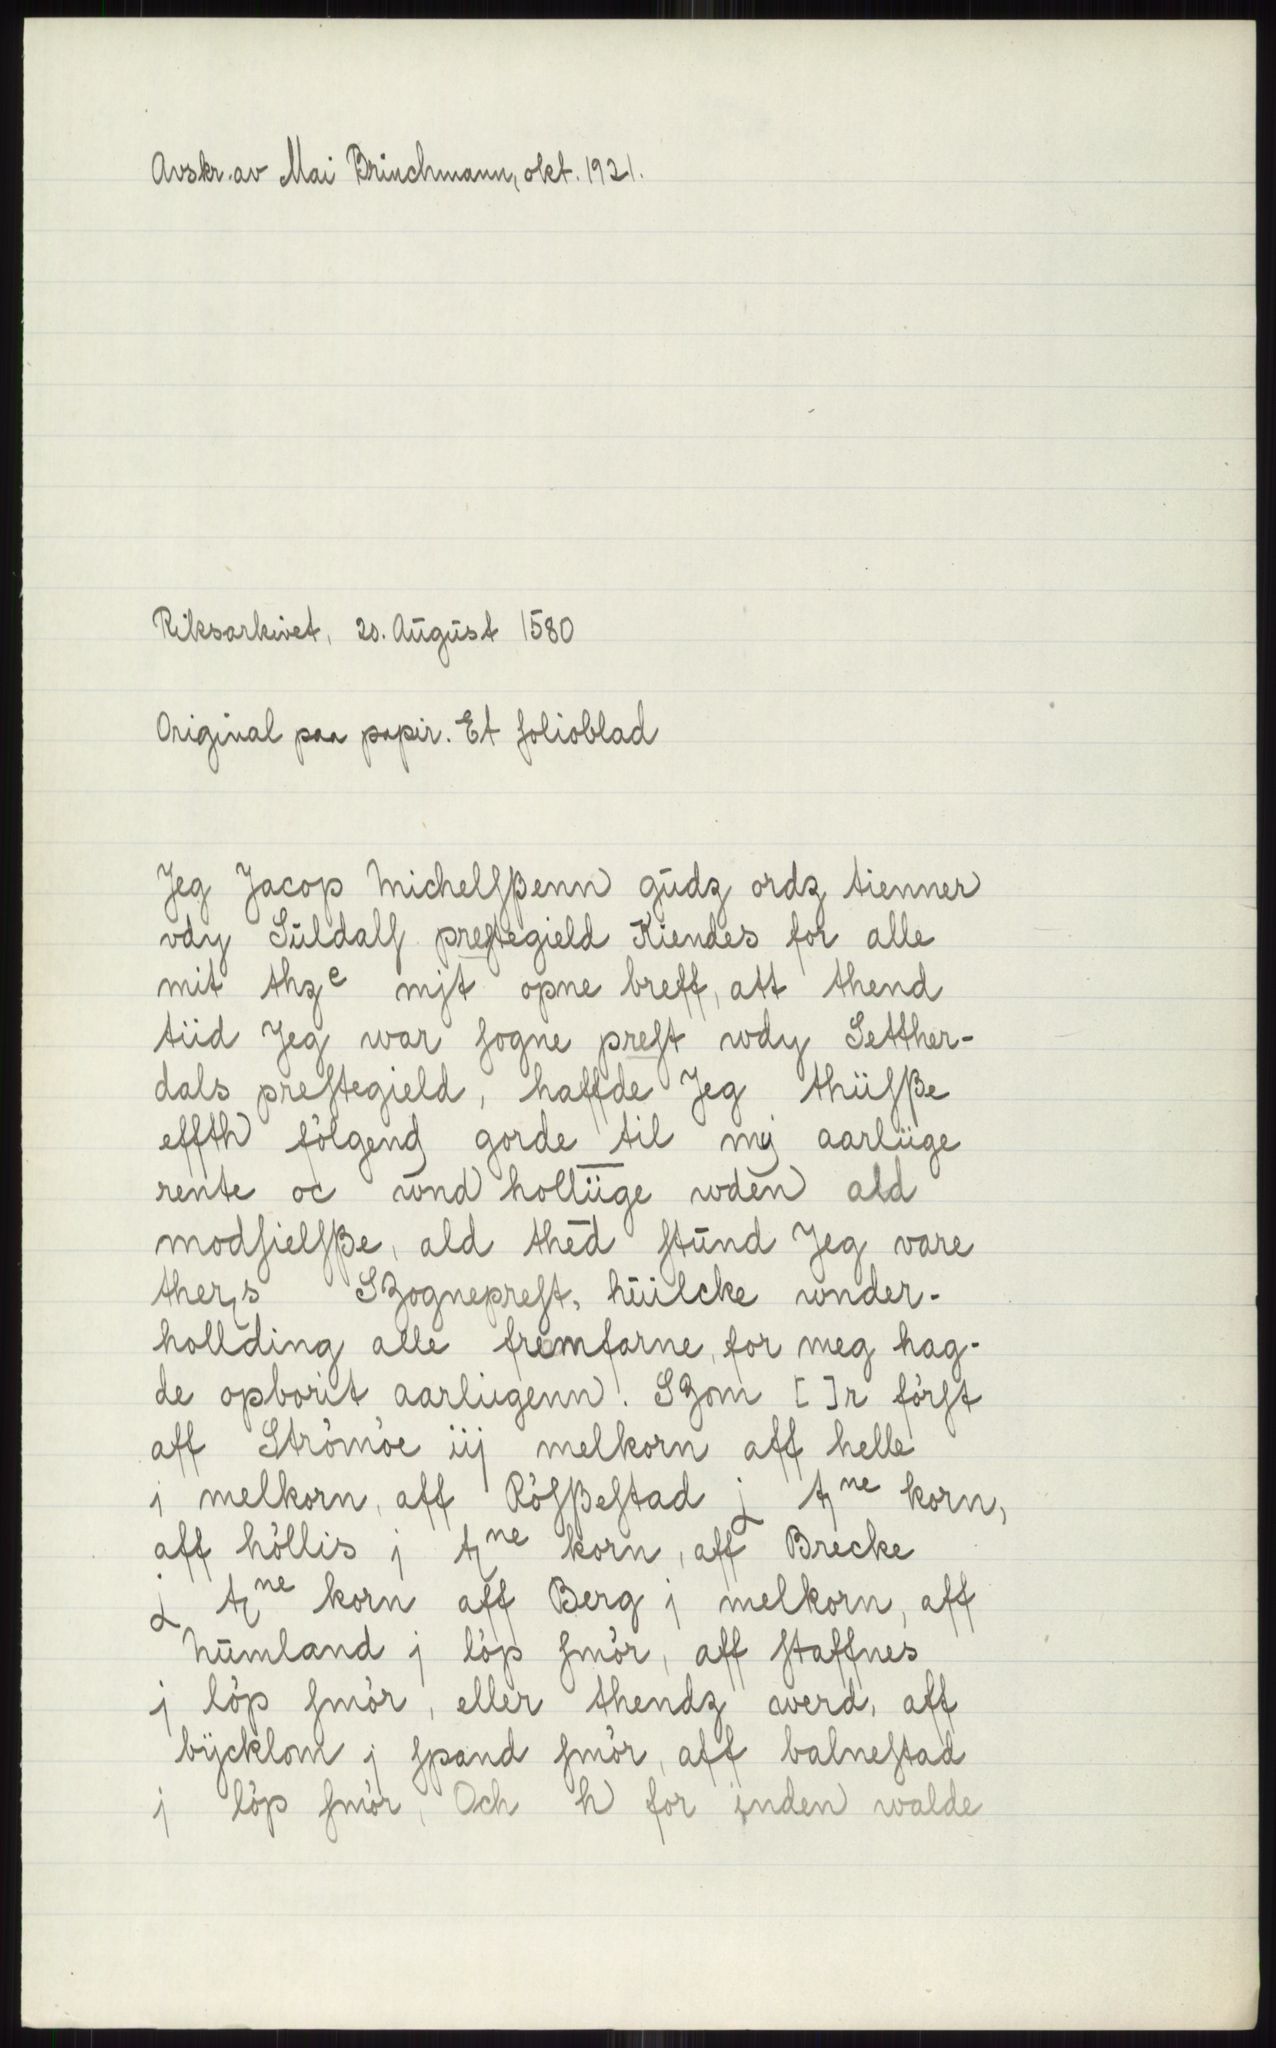 Avskr. av Mai Brinchmann, okt. 1921.
Riksarkivet, 20. August 1580
Original paa papir. Et folioblad
Jeg Jacop Michelsßenn gūdz ordz tienner
vdy Sūldals prestegield Kiendes for alle
mit thz^e mjt opne breff, att thend
tiid Jeg war sogne prest wdy Setther-
dals prestegield, haffde Jeg thüsße
effth fölgend gorde til mj aarliige
rente oc wnd holliige wden ald
modsielsße, ald thed stūnd Jeg vare
thers SZogneprest, hūilcke wnder-
hollding alle fremfarne, for meg hag-
de opborit aarliigenn. SZom [ ]r först
aff Strömöe iij melkorn aff helle
j melkorn, aff Rösßestad j t^ne korn,
aff höllis j t^ne korn, aff Brecke
j t^ne korn aff Berg j melkorn, aff
hūmland j löp smör, aff staffnes
j löp smör, eller thendz werd, aff
bÿcklom j spand smör, aff balnestad
j löp smör, Och h for inden walde